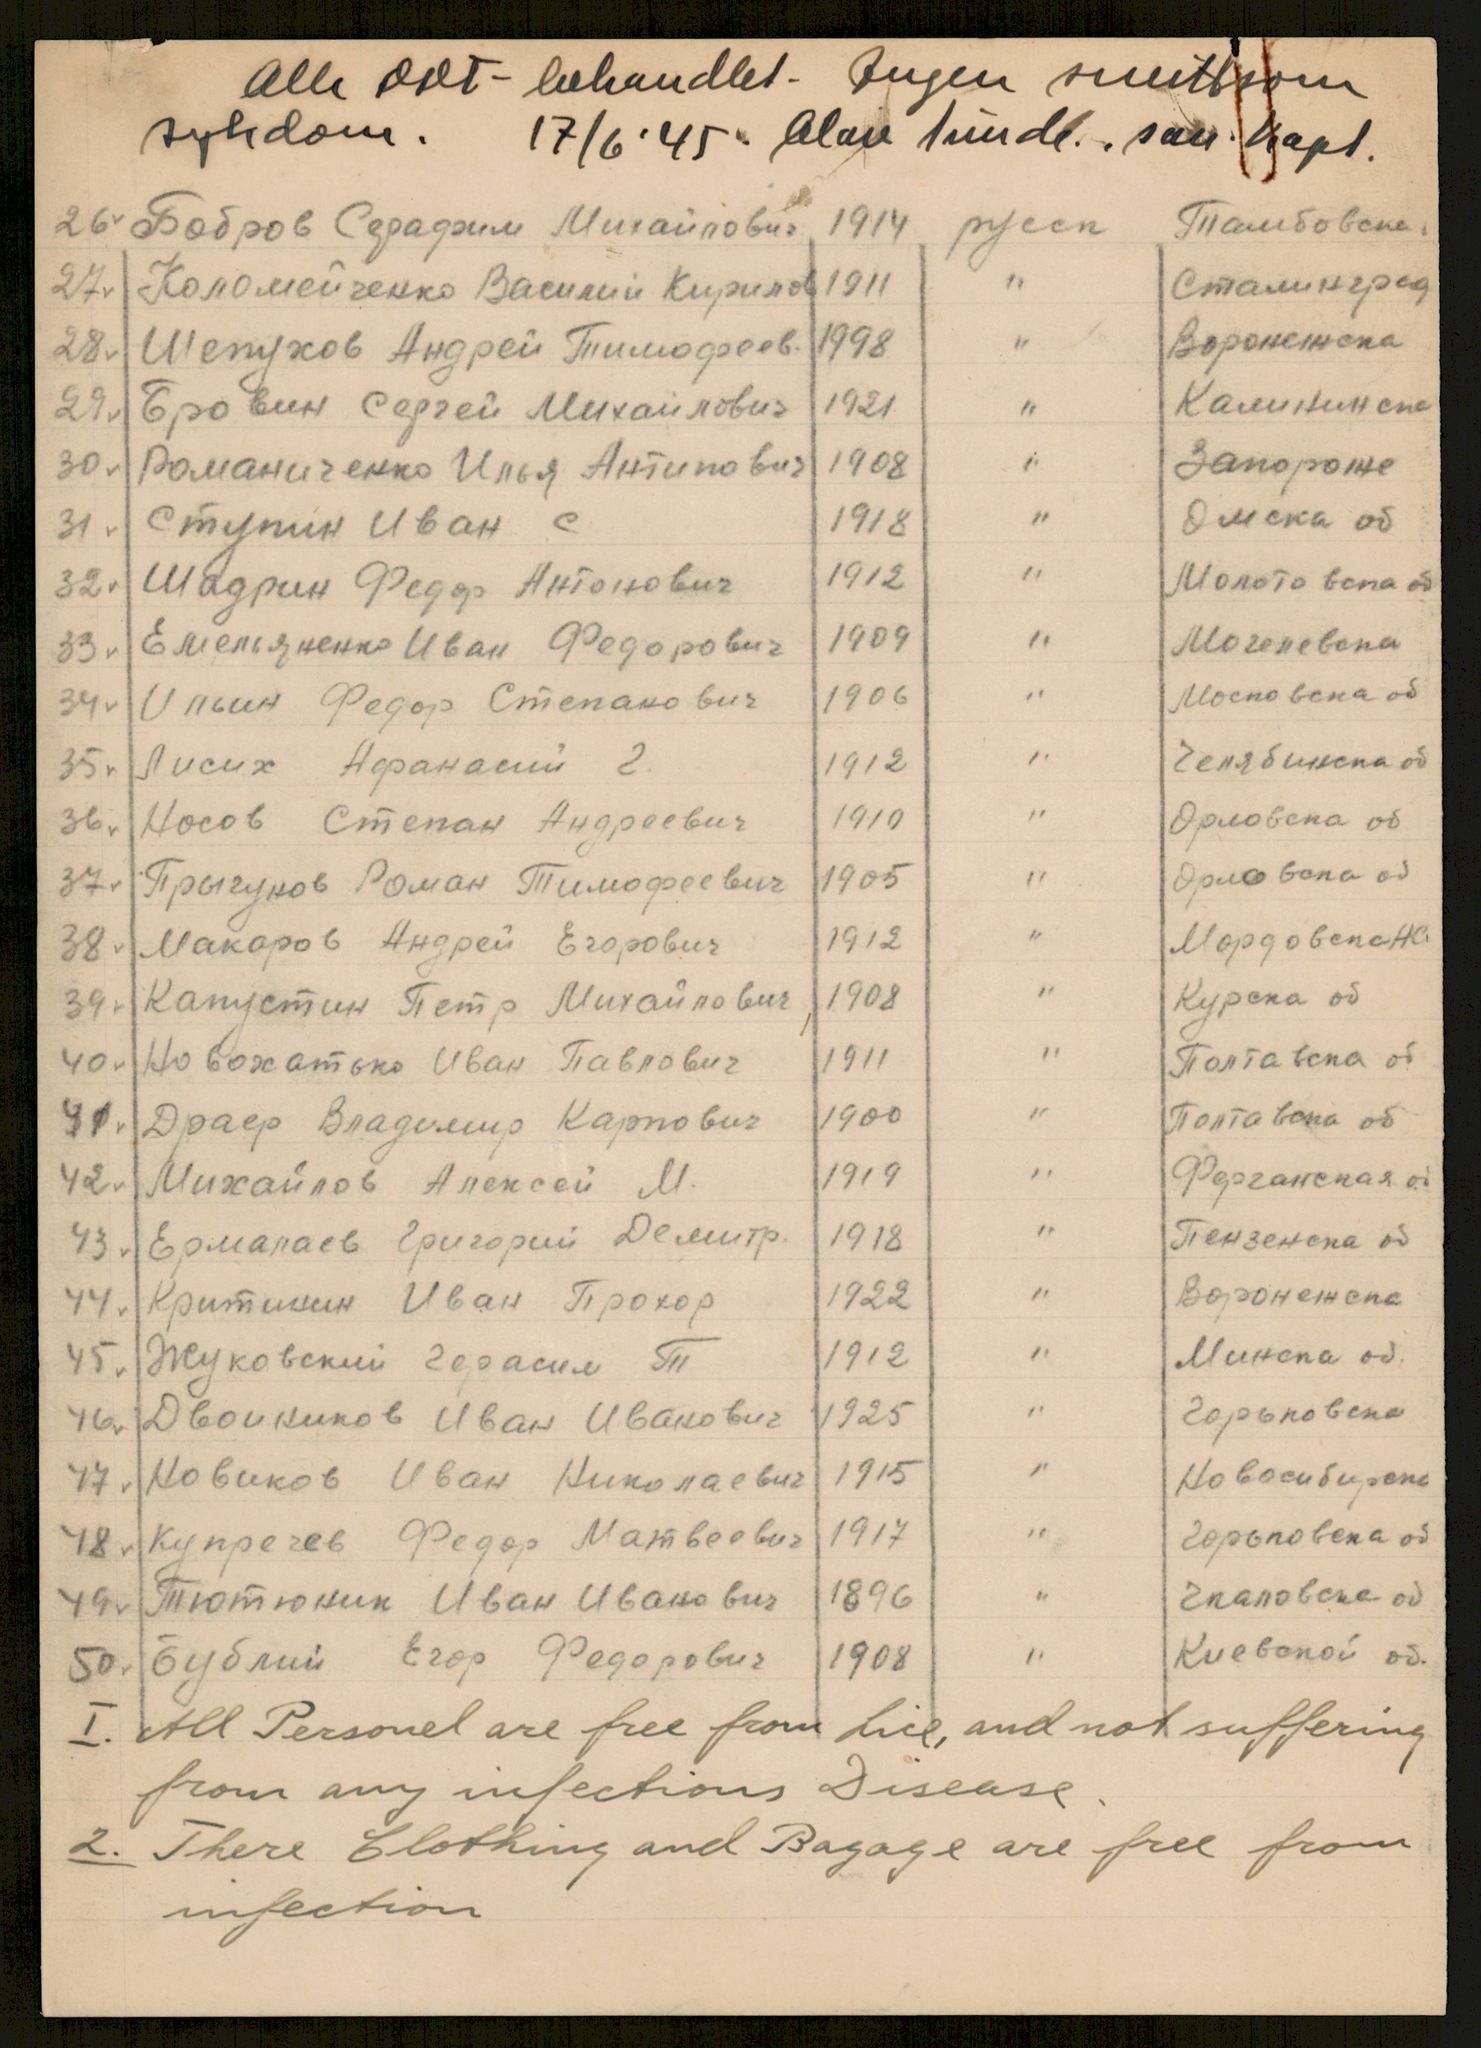 Alle DDT- behandlet. Ingen smittsom
sykdom. 17/6.45. san. kapt.
26 Бобров Серафим Михайлович 1914 русск Тамбовска
27 Коломейченко Василий Кирилов 1911 " Сталинград
28 Шепухов Андрей Тимофеев. 1998 " Воронежска
29 Бровин Сергей Михайлович 1921 " Калининска
30 Романиченко Илья Антипович 1908 " Запороже
31 Ступин Иван С 1918 " Омска об
32 Шадрин Федор Антонович 1912 " Молотовска об
33 Емельяненко Иван Федорович 1909 " Могелевска
34 Ильин Федор Степанович 1906 " Московска об
35 Лисих Афанасий Г. 1912 " Челябинска об
36 Носов Степан Андреевич 1910 " Орловска об
37 Прыгунов Роман Тимофеевич 1905 " Орловска об
38 Макаров Андрей Егорович 1912 " Мордовска
39 Капустин Петр Михайлович 1908 " Курска об
40 Новохатько Иван Павлович 1911 " Полтавска об
41 Драер Владимир Карпович 1900 " Полтавска об
42 Михайлов Алексей М. 1919 " Ферганская об
43 Ермалаев Григорий Демитр. 1918 " Пензенска об
44 Критинин Иван Прохор 1922 " Воронежска
45 Жуковский Герасим Т 1912 " Минска об.
46 Двоиников Иван Иванович 1925 " Горьковска
47 Новиков Иван Николаевич 1915 " Новосибирска
48 Купречев Федор Матвеевич 1917 " Горьковска об
49 Тютюник Иван Иванович 1896 " Чкаловска об
50 Бублий Егор Федорович 1908 " Киевской об.
I. All Personel are free from Lice, and not suffering
from any infections Disease.
2. There Clothing and Bagage are free from
infection